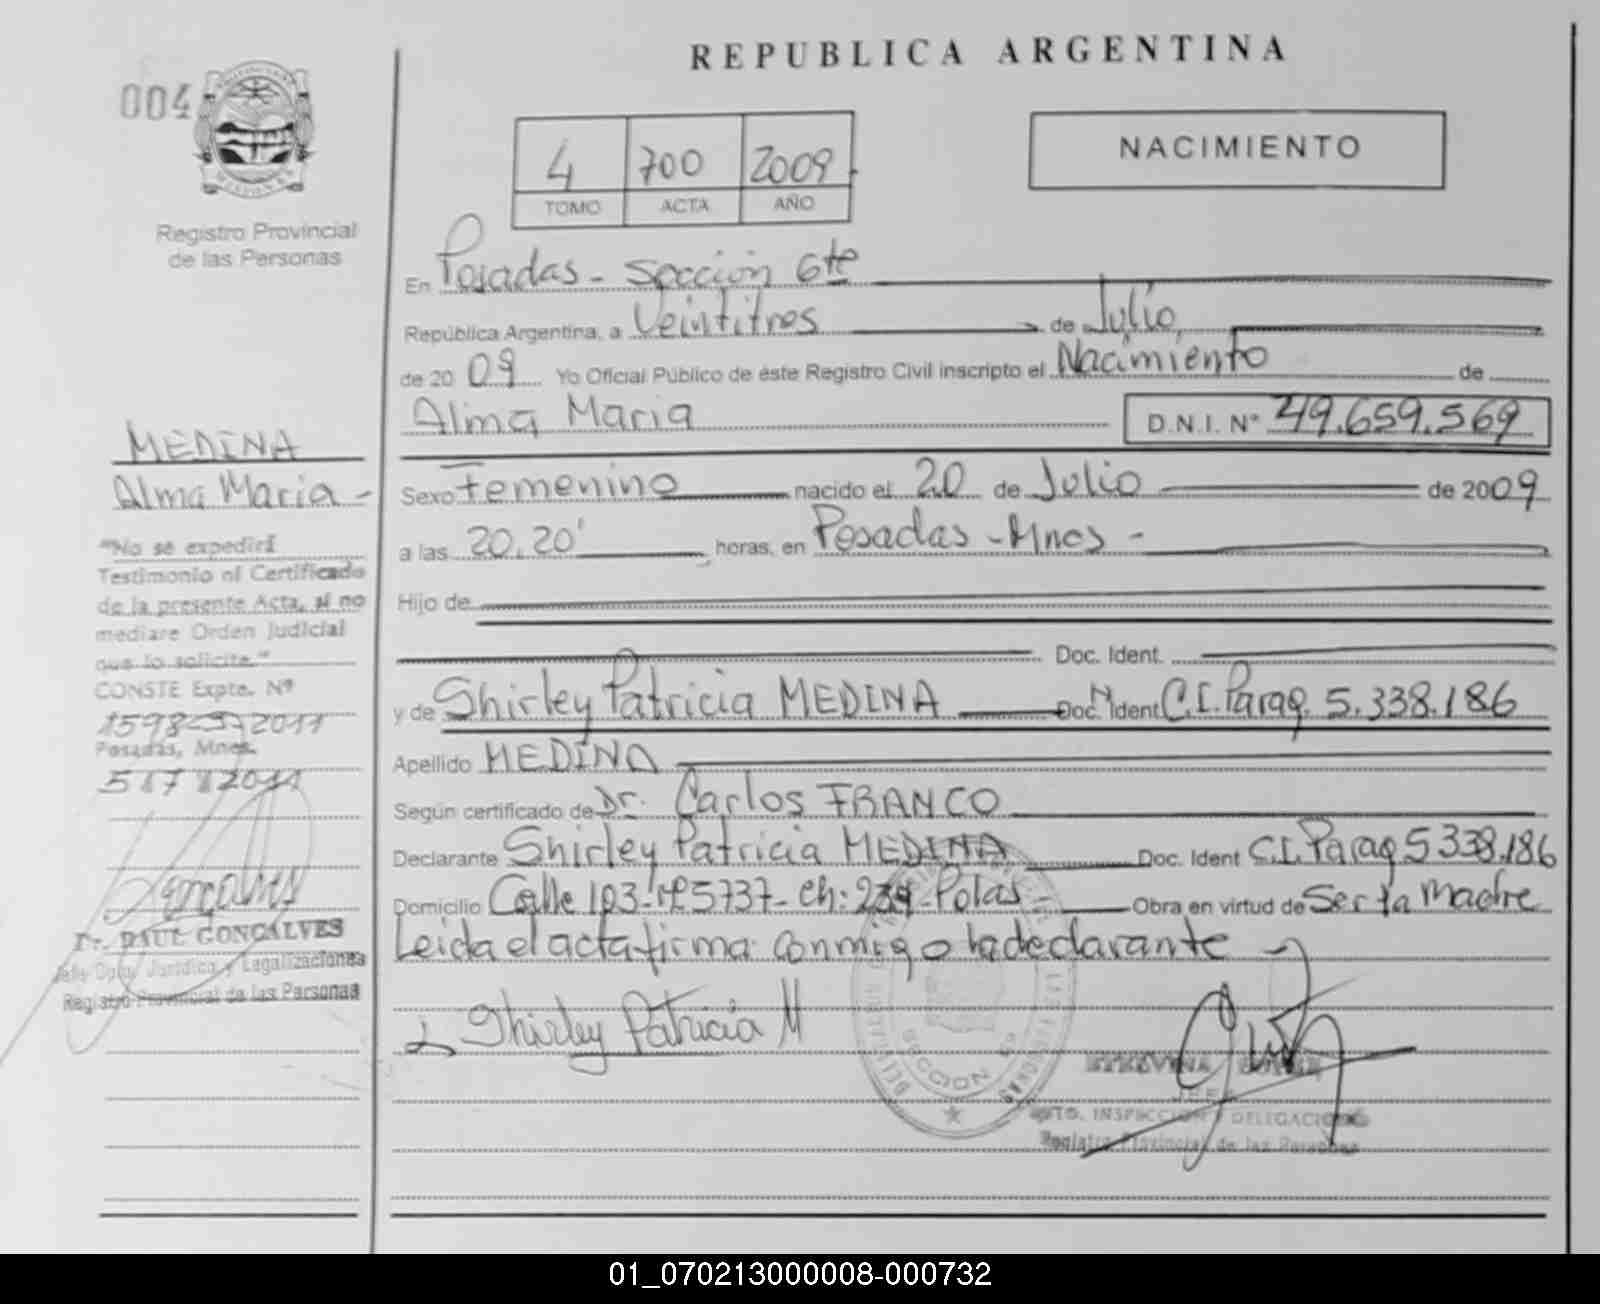 REPUBLICA ARGENTINA
004
4 700 2009
TOMO ACTA AÑO
NACIMIENTO
Registro Provincial
de las Personas
En Posadas - Sección 6te
República Argentina, a Veintitres de Julio
de 20 09 Yo Oficial Público de éste Registro Civil inscripto el Nacimiento de
Alma Maria D.N.I. Nº 49.659.569
Sexo Femenino nacido el 20 de Julio de 2009
a las 20.20' horas, en Posadas - Mnes -
Hijo de
Doc. Ident.
y de Shirley Patricia MEDINA Doc. Ident C.I. Parag. 5.338.186
Apellido MEDINA
Según certificado de Dr. Carlos FRANCO
Declarante Shirley Patricia MEDINA Doc. Ident C.I. Parag 5338.186
Domicilio Calle 193-Nº5737- Ch: - Pdas Obra en virtud de Ser la Madre
Leida el acta firma conmigo la declarante
Shirley Patricia M
SECCION
JEFE
DTO. INSPECCION Y DELEGACIONES
Registro Provincial de las Personas
MEDINA
Alma Maria -
"No se expedirá
Testimonio ni Certificado
de la presente Acta, si no
mediare Orden Judicial
que lo solicite."
CONSTE Expte. Nº
1598-J-2011
Posadas, Mnes.
5 7 2011
Dr. RAUL GONCALVES
Jefe Dpto. Jurídico y Legalizaciones
Registro Provincial de las Personas
01_070213000008-000732